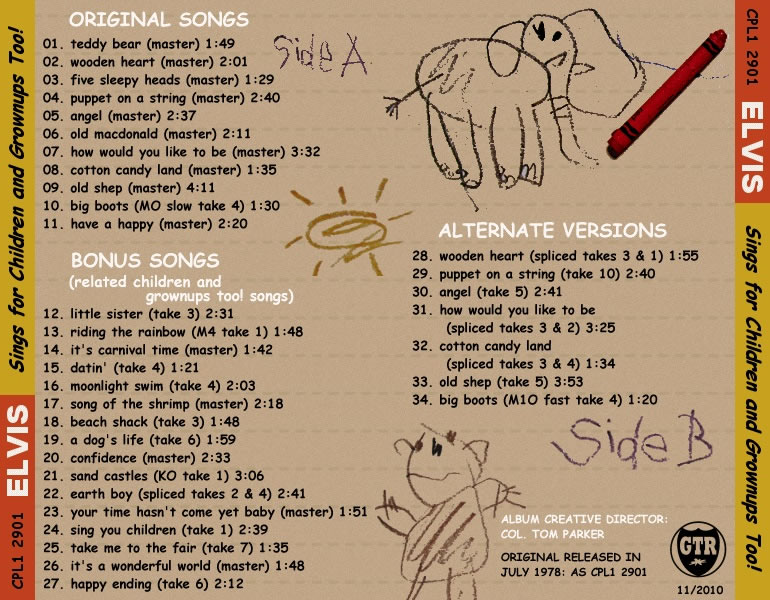 Sings for Children and Grownups Too!
ELVIS
CPL1 2901
ORIGINAL SONGS
01. teddy bear (master) 1:49
02. wooden heart (master) 2:01
03. five sleepy heads (master) 1:29
04. puppet on a string (master) 2:40
05. angel (master) 2:37
06. old macdonald (master) 2:11
07. how would you like to be (master) 3:32
08. cotton candy land (master) 1:35
09. old shep (master) 4:11
10. big boots (MO slow take 4) 1:30
11. have a happy (master) 2:20
Side A
BONUS SONGS
(related children and
grownups too! songs)
12. little sister (take 3) 2:31
13. riding the rainbow (M4 take 1) 1:48
14. it's carnival time (master) 1:42
15. datin' (take 4) 1:21
16. moonlight swim (take 4) 2:03
17. song of the shrimp (master) 2:18
18. beach shack (take 3) 1:48
19. a dog's life (take 6) 1:59
20. confidence (master) 2:33
21. sand castles (KO take 1) 3:06
22. earth boy (spliced takes 2 & 4) 2:41
23. your time hasn't come yet baby (master) 1:51
24. sing you children (take 1) 2:39
25. take me to the fair (take 7) 1:35
26. it's a wonderful world (master) 1:48
27. happy ending (take 6) 2:12
ALTERNATE VERSIONS
28. wooden heart (spliced takes 3 & 1) 1:55
29. puppet on a string (take 10) 2:40
30. angel (take 5) 2:41
31. how would you like to be
(spliced takes 3 & 2) 3:25
32. cotton candy land
(spliced takes 3 & 4) 1:34
33. old shep (take 5) 3:53
34. big boots (M1O fast take 4) 1:20
Side B
ALBUM CREATIVE DIRECTOR:
COL. TOM PARKER
ORIGINAL RELEASED IN
JULY 1978: AS CPL1 2901
GTR
11/2010
CPL1 2901
ELVIS
Sings for Children and Grownups Too!